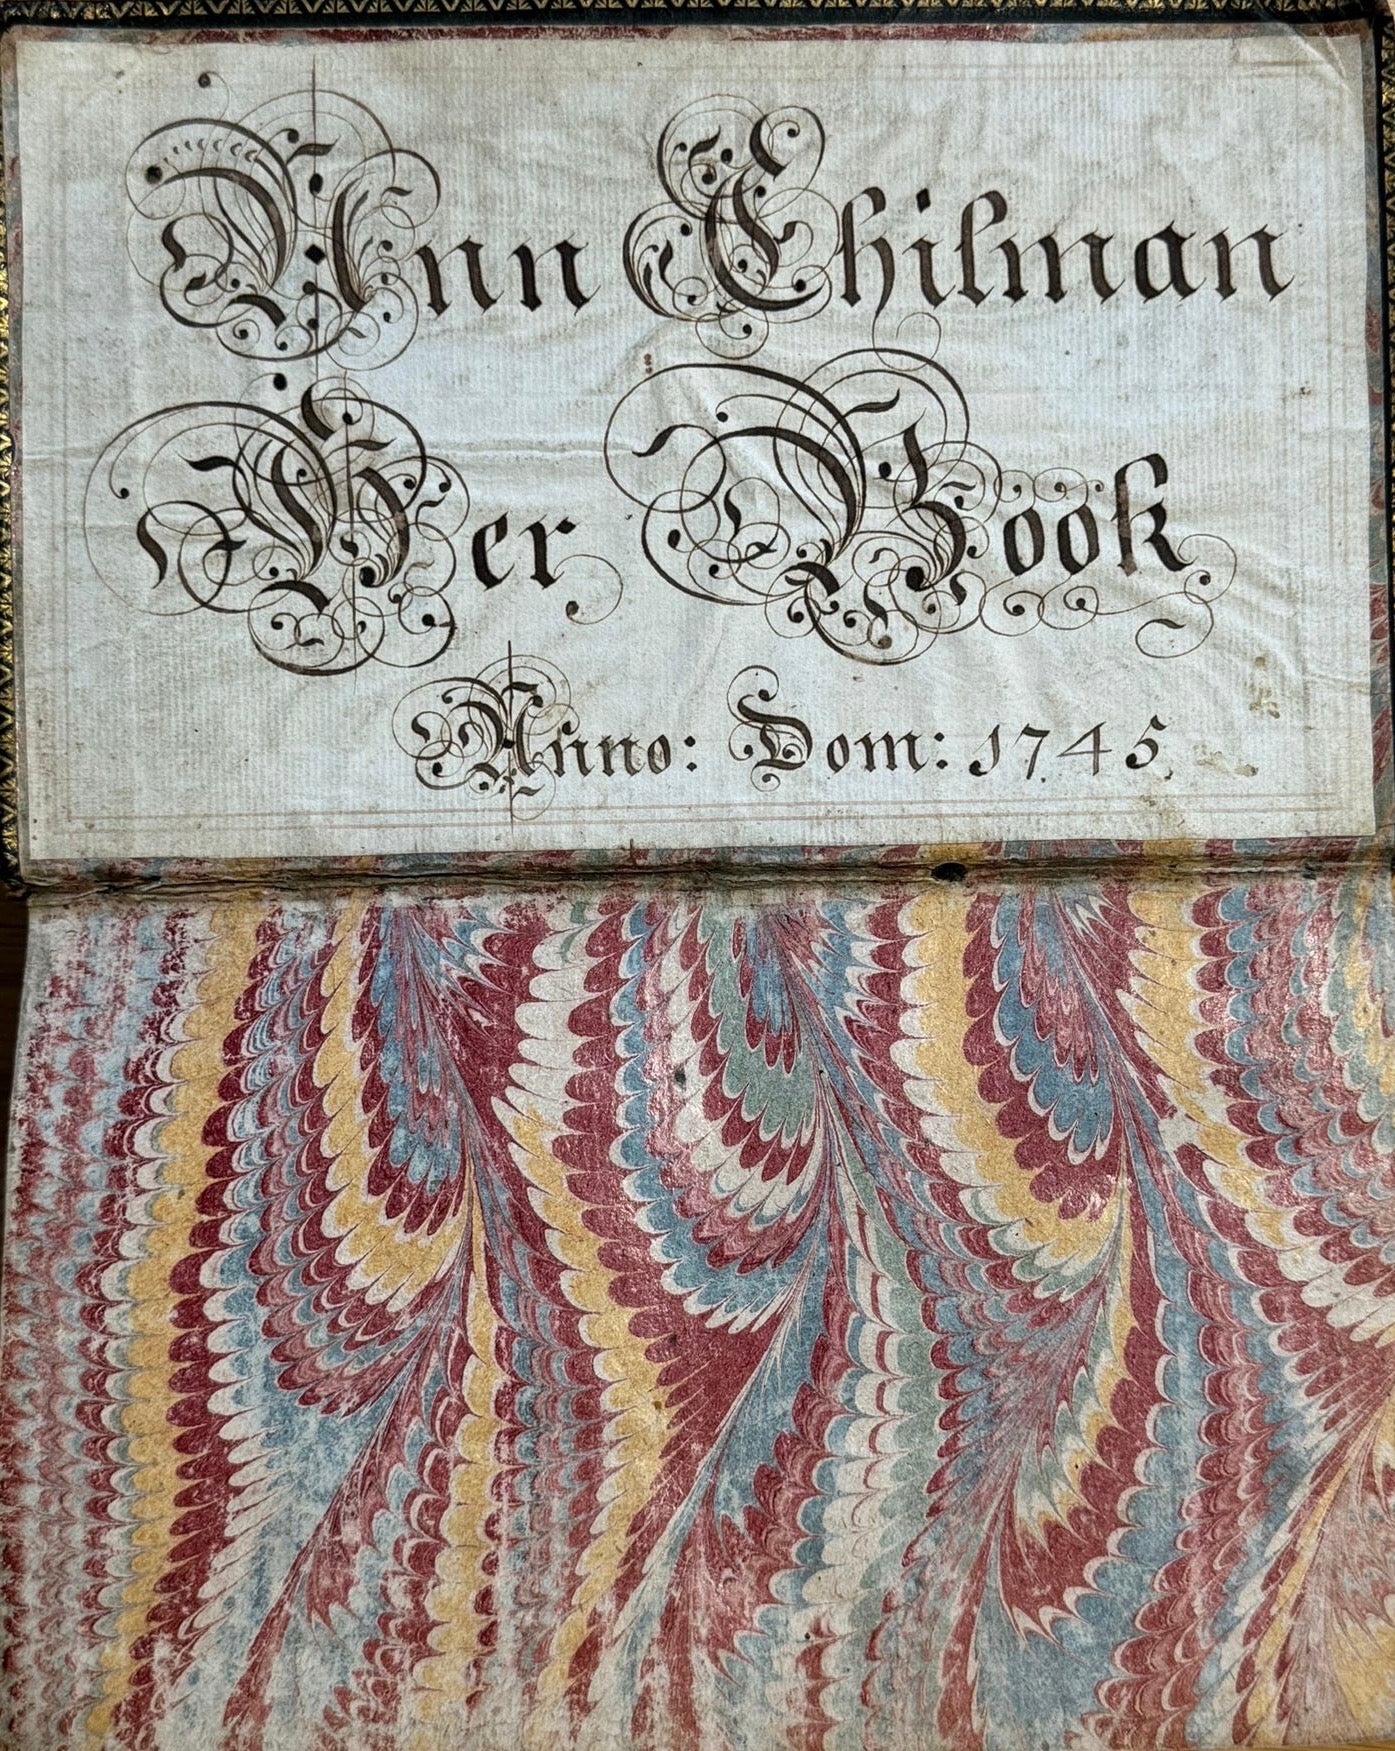 Ann Chilman
Her Book
Anno: Dom: 1745